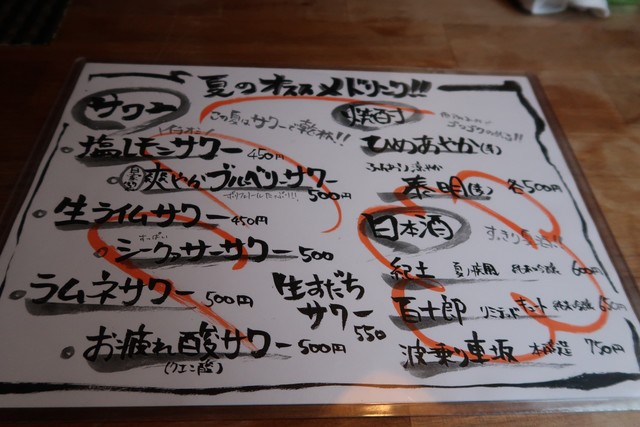 夏のオススメドリンク!!
サワー
この夏はサワーで乾杯!!
イチオシ!
塩レモンサワー 450円
爽やかブルーベリーサワー 500円
ポリフェノールたっぷり!!!
生ライムサワー 450円
すっぱい
シークァーサーサワー 500
ラムネサワー 500円
生すだちサワー 550
お疲れ酸サワー 500円
(クエン酸)
焼酎
ひめあやか(芋)
泰明(麦) 各500円
日本酒
すっきり夏酒!!
紀土 夏ノ疾風 純米吟醸 600円
百十郎 純米吟醸 650円
波乗り車坂 本醸造 750円